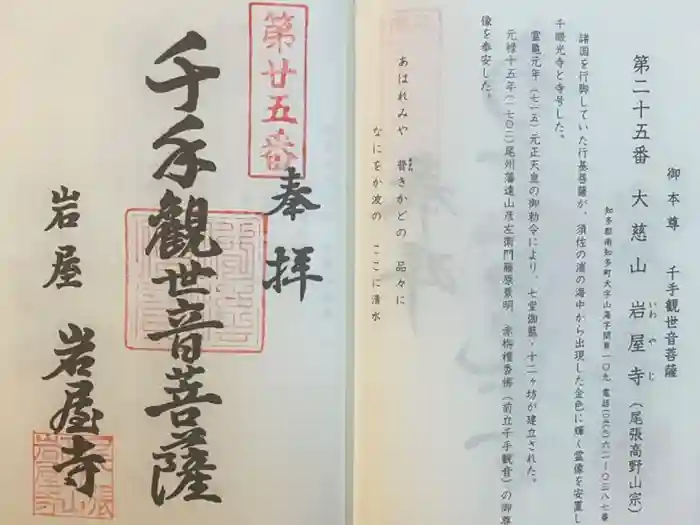 御本尊 千手観世音菩薩
第二十五番 大慈山 岩屋寺(尾張高野山宗)
いわ や じ
知多郡南知多町大字山海字間草一〇九 電話(〇五六九)六二-〇三八七番
諸国を行脚していた行基菩薩が、須佐の浦の海中から出現した金色に輝く霊像を安置し
千眼光寺と寺号した。
霊亀元年(七一五)元正天皇の御勅令により、七堂伽藍・十二ヶ坊が建立された。
元禄十五年(一七〇二)尾州藩遠山彦左衛門藤原景明、赤栴檀香佛(前立千手観音)の御尊
像を奉安した。
あはれみや 普きかどの 品々に
なにをか波の ここに清水
第廿五番
奉拝
千手觀世音菩薩
岩屋 岩屋寺